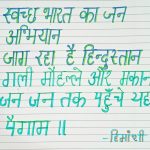 स्वच्छ भारत का जन
अभियान
जाग रहा है हिन्दुस्तान
गली मौहल्ले और मकान
जन जन तक पहुँचे यह
पैगाम ॥
-हिमांशी